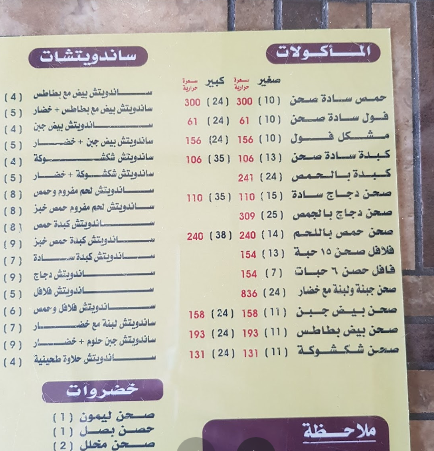 المأكولات
صغير سعرة حرارية كبير سعرة حرارية
حمص سادة صحن (10) 300 (24) 300
فول سادة صحن (10) 61 (24) 61
مشكل فول (10) 156 (24) 156
كبدة سادة صحن (13) 106 (35) 106
كبدة بالحمص (24) 241
صحن دجاج سادة (15) 110 (35) 110
صحن دجاج بالحمص (25) 309
صحن حمص باللحم (14) 240 (38) 240
فلافل صحن ١٥ حبة (13) 154
فافل حصن ٦ حبات (7) 154
صحن جبنة ولبنة مع خضار (24) 836
صحن بيض جبن (11) 158 (24) 158
صحن بيض بطاطس (11) 193 (24) 193
صحن شكشوكة (11) 131 (24) 131
ملاحظة
ساندويتشات
ساندويتش بيض مع بطاطس (4)
ساندويتش بيض مع بطاطس + خضار (5)
ساندويتش بيض جبن (4)
ساندويتش بيض جبن + خضار (5)
ساندويتش شكشوكة (4)
ساندويتش شكشوكة + خضار (5)
ساندويتش لحم مفروم وحمص (8)
ساندويتش لحم مفروم حمص خبز (8)
ساندويتش كبدة حمص (8)
ساندويتش كبدة حمص خبز (9)
ساندويتش كبدة سادة (7)
ساندويتش دجاج (9)
ساندويتش فلافل (5)
ساندويتش فلافل وحمص (6)
ساندويتش لبنة مع خضار (7)
ساندويتش جبن حلوم + خضار (9)
ساندويتش حلاوة طحينية (4)
خضروات
صحن ليمون (1)
حصن بصل (1)
صحن مخلل (2)